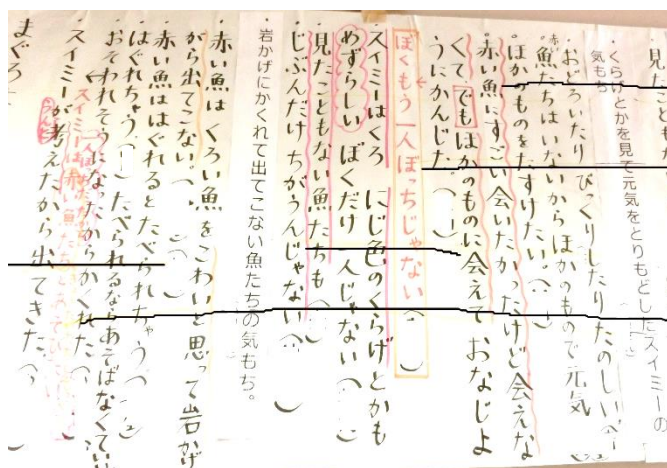 見たこともな
・くらげとかを見て元気をとりもどしたスイミーの
気もち
・おどろいたりびっくりしたりたのしい
赤い
魚たちはいないからほかのもので元気
ほかのものをたすけたい。
赤い魚にすごい会いたかったけど会えな
くて、でもほかのものに会えておなじよ
うにかんじた
ぼくもう一人ぼっちじゃない
スイミーはくろ にじ色のくらげとかも
めずらしい ぼくだけ一人じゃない
見たこともない魚たちも
じぶんだけちがうんじゃない
・岩かげにかくれて出てこない魚たちの気もち。
赤い魚はくろい魚をこわいと思って岩かげ
から出てこない。
・赤い魚ははぐれるとたべられちゃう
はぐれちゃう たべられるならあそばなくてい
おそわれそうになったからかくれた
スイミーは赤い魚たち
・スイミーが考えたから出てきた
まぐろ